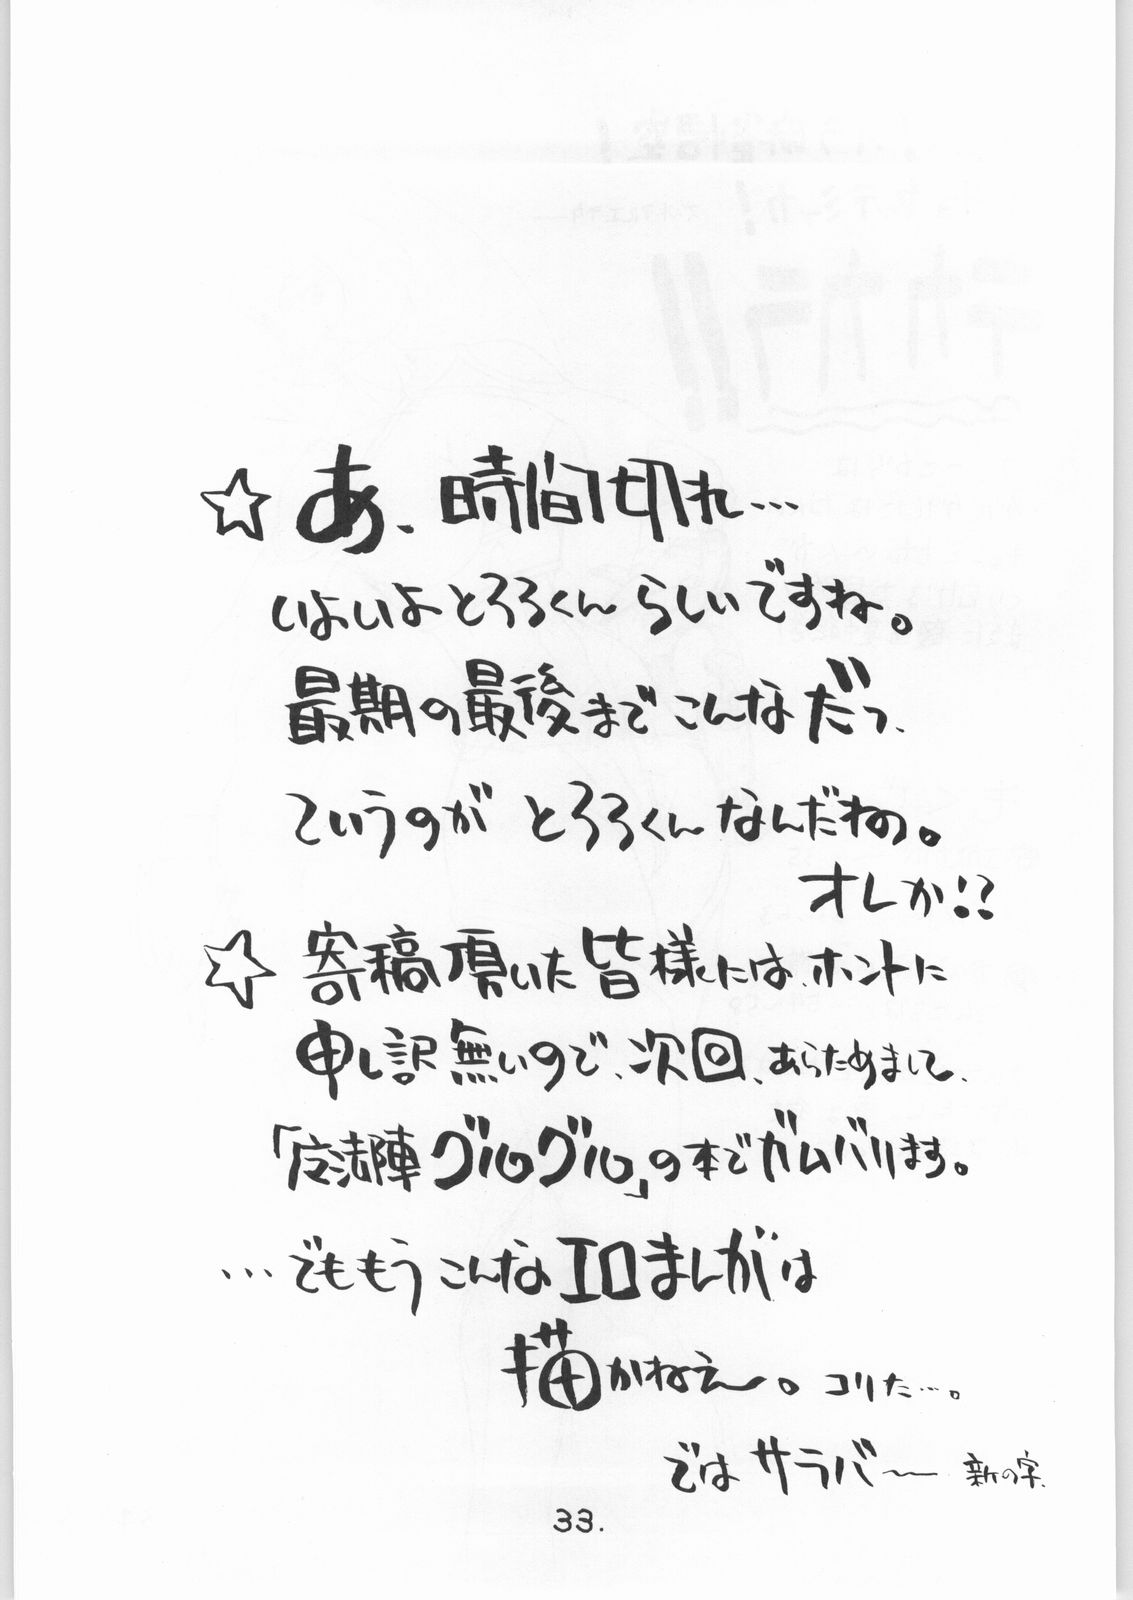 ☆ あ、時間切れ…
いよいよとろろくんらしいですね。
最期の最後までこんなだっ、
ていうのがとろろくんなんだねの。
オレか!?
☆ 寄稿頂いた皆様には、ホントに
申し訳無いので、次回、あらためまして、
「魔法陣グルグル」の本でガムバリます。
…でももうこんなエロまんがは
描かねえ〜。コリた…。
ではサラバ〜 新の字.
33.